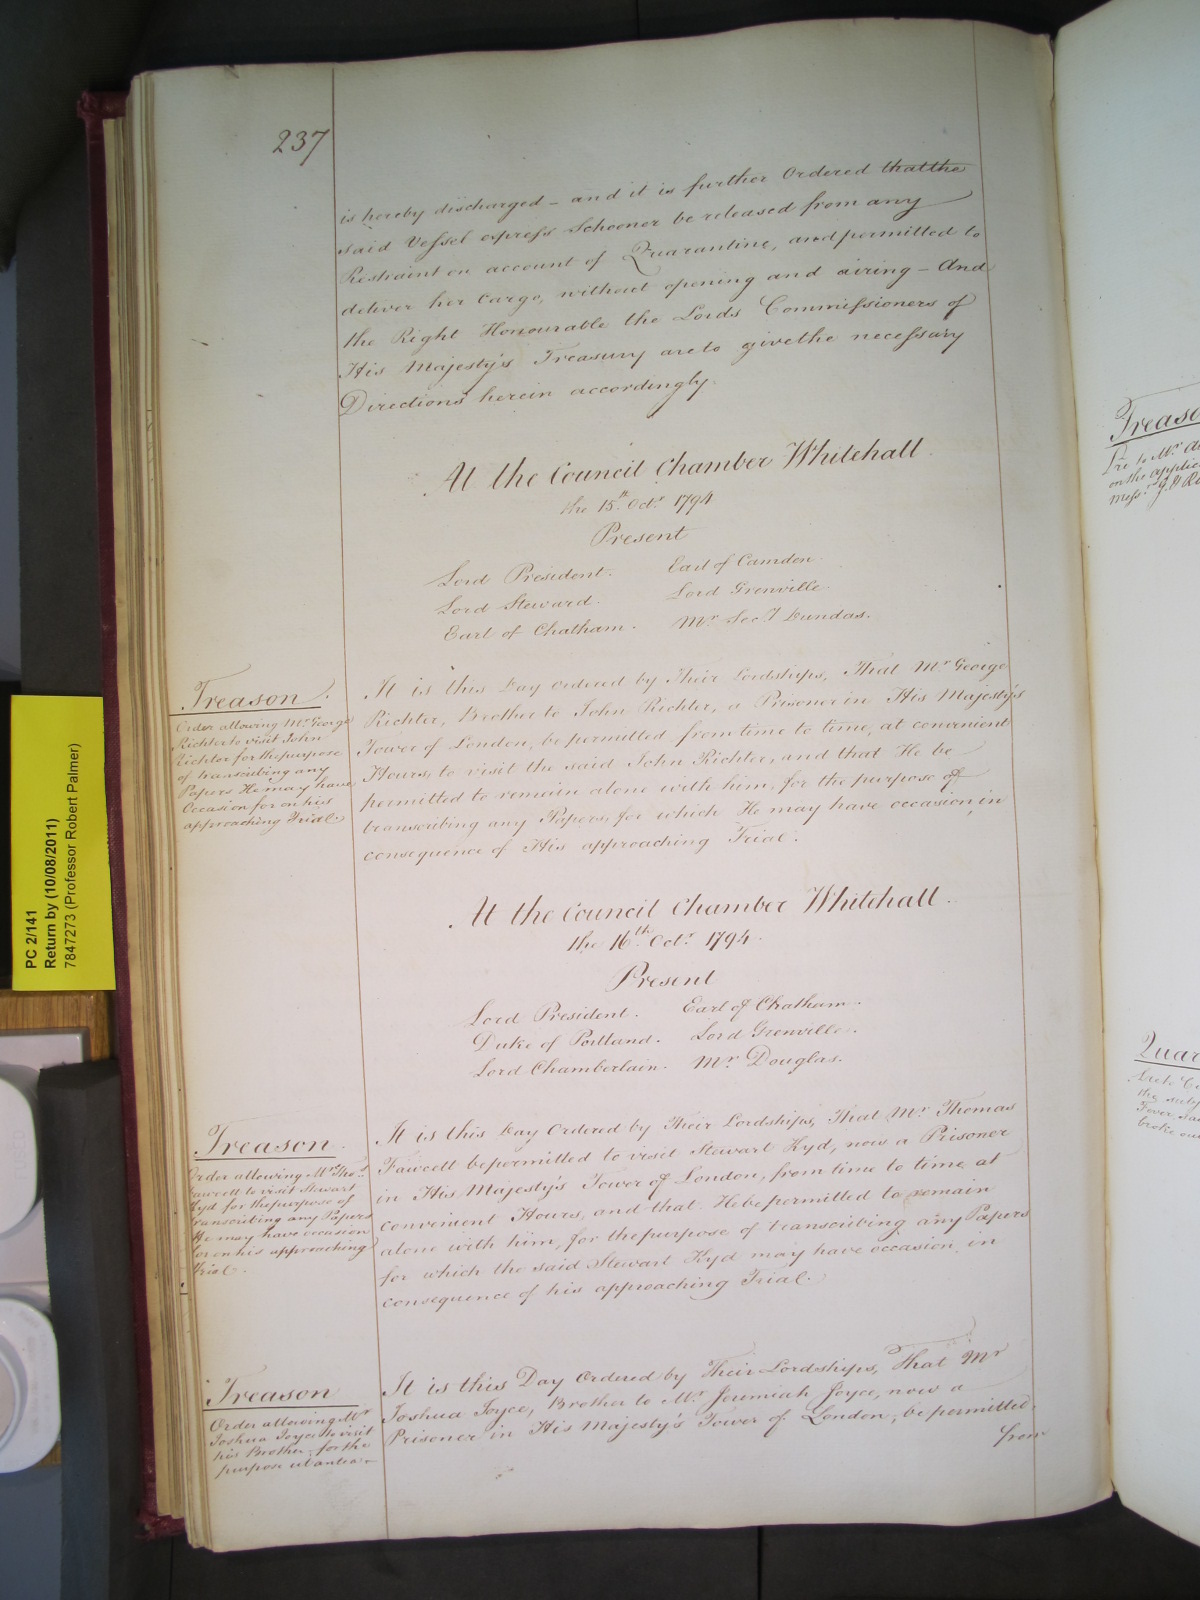 237
is hereby discharged – and it is further Ordered that the
said Vessel express Schooner be released from any
Restraint on account of Quarantine, and permitted to
deliver her Cargo, without opening and airing – And
the Right Honourable the Lords Commissioners of
His Majesty's Treasury are to give the necessary
Directions herein accordingly.
At the Council Chamber Whitehall.
the 15th Octr 1794
Present
Lord President. Earl of Camden
Lord Steward. Lord Grenville
Earl of Chatham. Mr Secy Dundas.
Treason.
Order allowing Mr George
Richter to visit John
Richter for the purpose
of transcribing any
Papers He may have
Occasion for on his
approaching Trial.
It is this Day Ordered by Their Lordships, That Mr George
Richter, Brother to John Richter, a Prisoner in His Majesty's
Tower of London, be permitted from time to time, at convenient
Hours, to visit the said John Richter, and that He be
permitted to remain alone with him, for the purpose of
transcribing any Papers, for which He may have occasion in
consequence of His approaching Trial.
At the Council Chamber Whitehall.
the 16th Octr 1794.
Present
Lord President. Earl of Chatham.
Duke of Portland. Lord Grenville.
Lord Chamberlain. Mr Douglas.
Treason.
Order allowing Mr Thos
Fawcett to visit Stewart
Kyd for the purpose of
transcribing any Papers
He may have occasion
for on his approaching
Trial.
It is this Day Ordered by Their Lordships, That Mr Thomas
Fawcett be permitted to visit Stewart Kyd, now a Prisoner
in His Majesty's Tower of London, from time to time at
convenient Hours, and that He be permitted to remain
alone with him, for the purpose of transcribing any Papers
for which the said Stewart Kyd may have occasion in
consequence of his approaching Trial.
Treason
Order allowing Mr
Joshua Joyce to visit
his Brother for the
purpose ut antea –
It is this Day Ordered by Their Lordships, That Mr
Joshua Joyce, Brother to Mr Jeremiah Joyce, now a
Prisoner in His Majesty's Tower of London, be permitted
from
PC 2/141
Return by (10/08/2011)
7847273 (Professor Robert Palmer)
Treas
to Mr
on the
Messrs
Quar
the
Fever
broke out